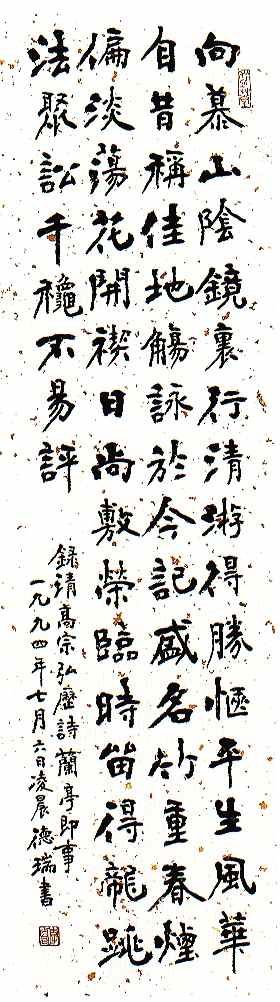 向慕山陰鏡裏行清游得勝愜平生風華
自昔稱佳地觴詠於今記盛名竹重春煙
偏淡蕩花開禊日尚敷榮臨時留得龍跳
法聚訟千穐不易評
録清高宗弘歷詩蘭亭即事
一九九四年七月六日凌晨德瑞書